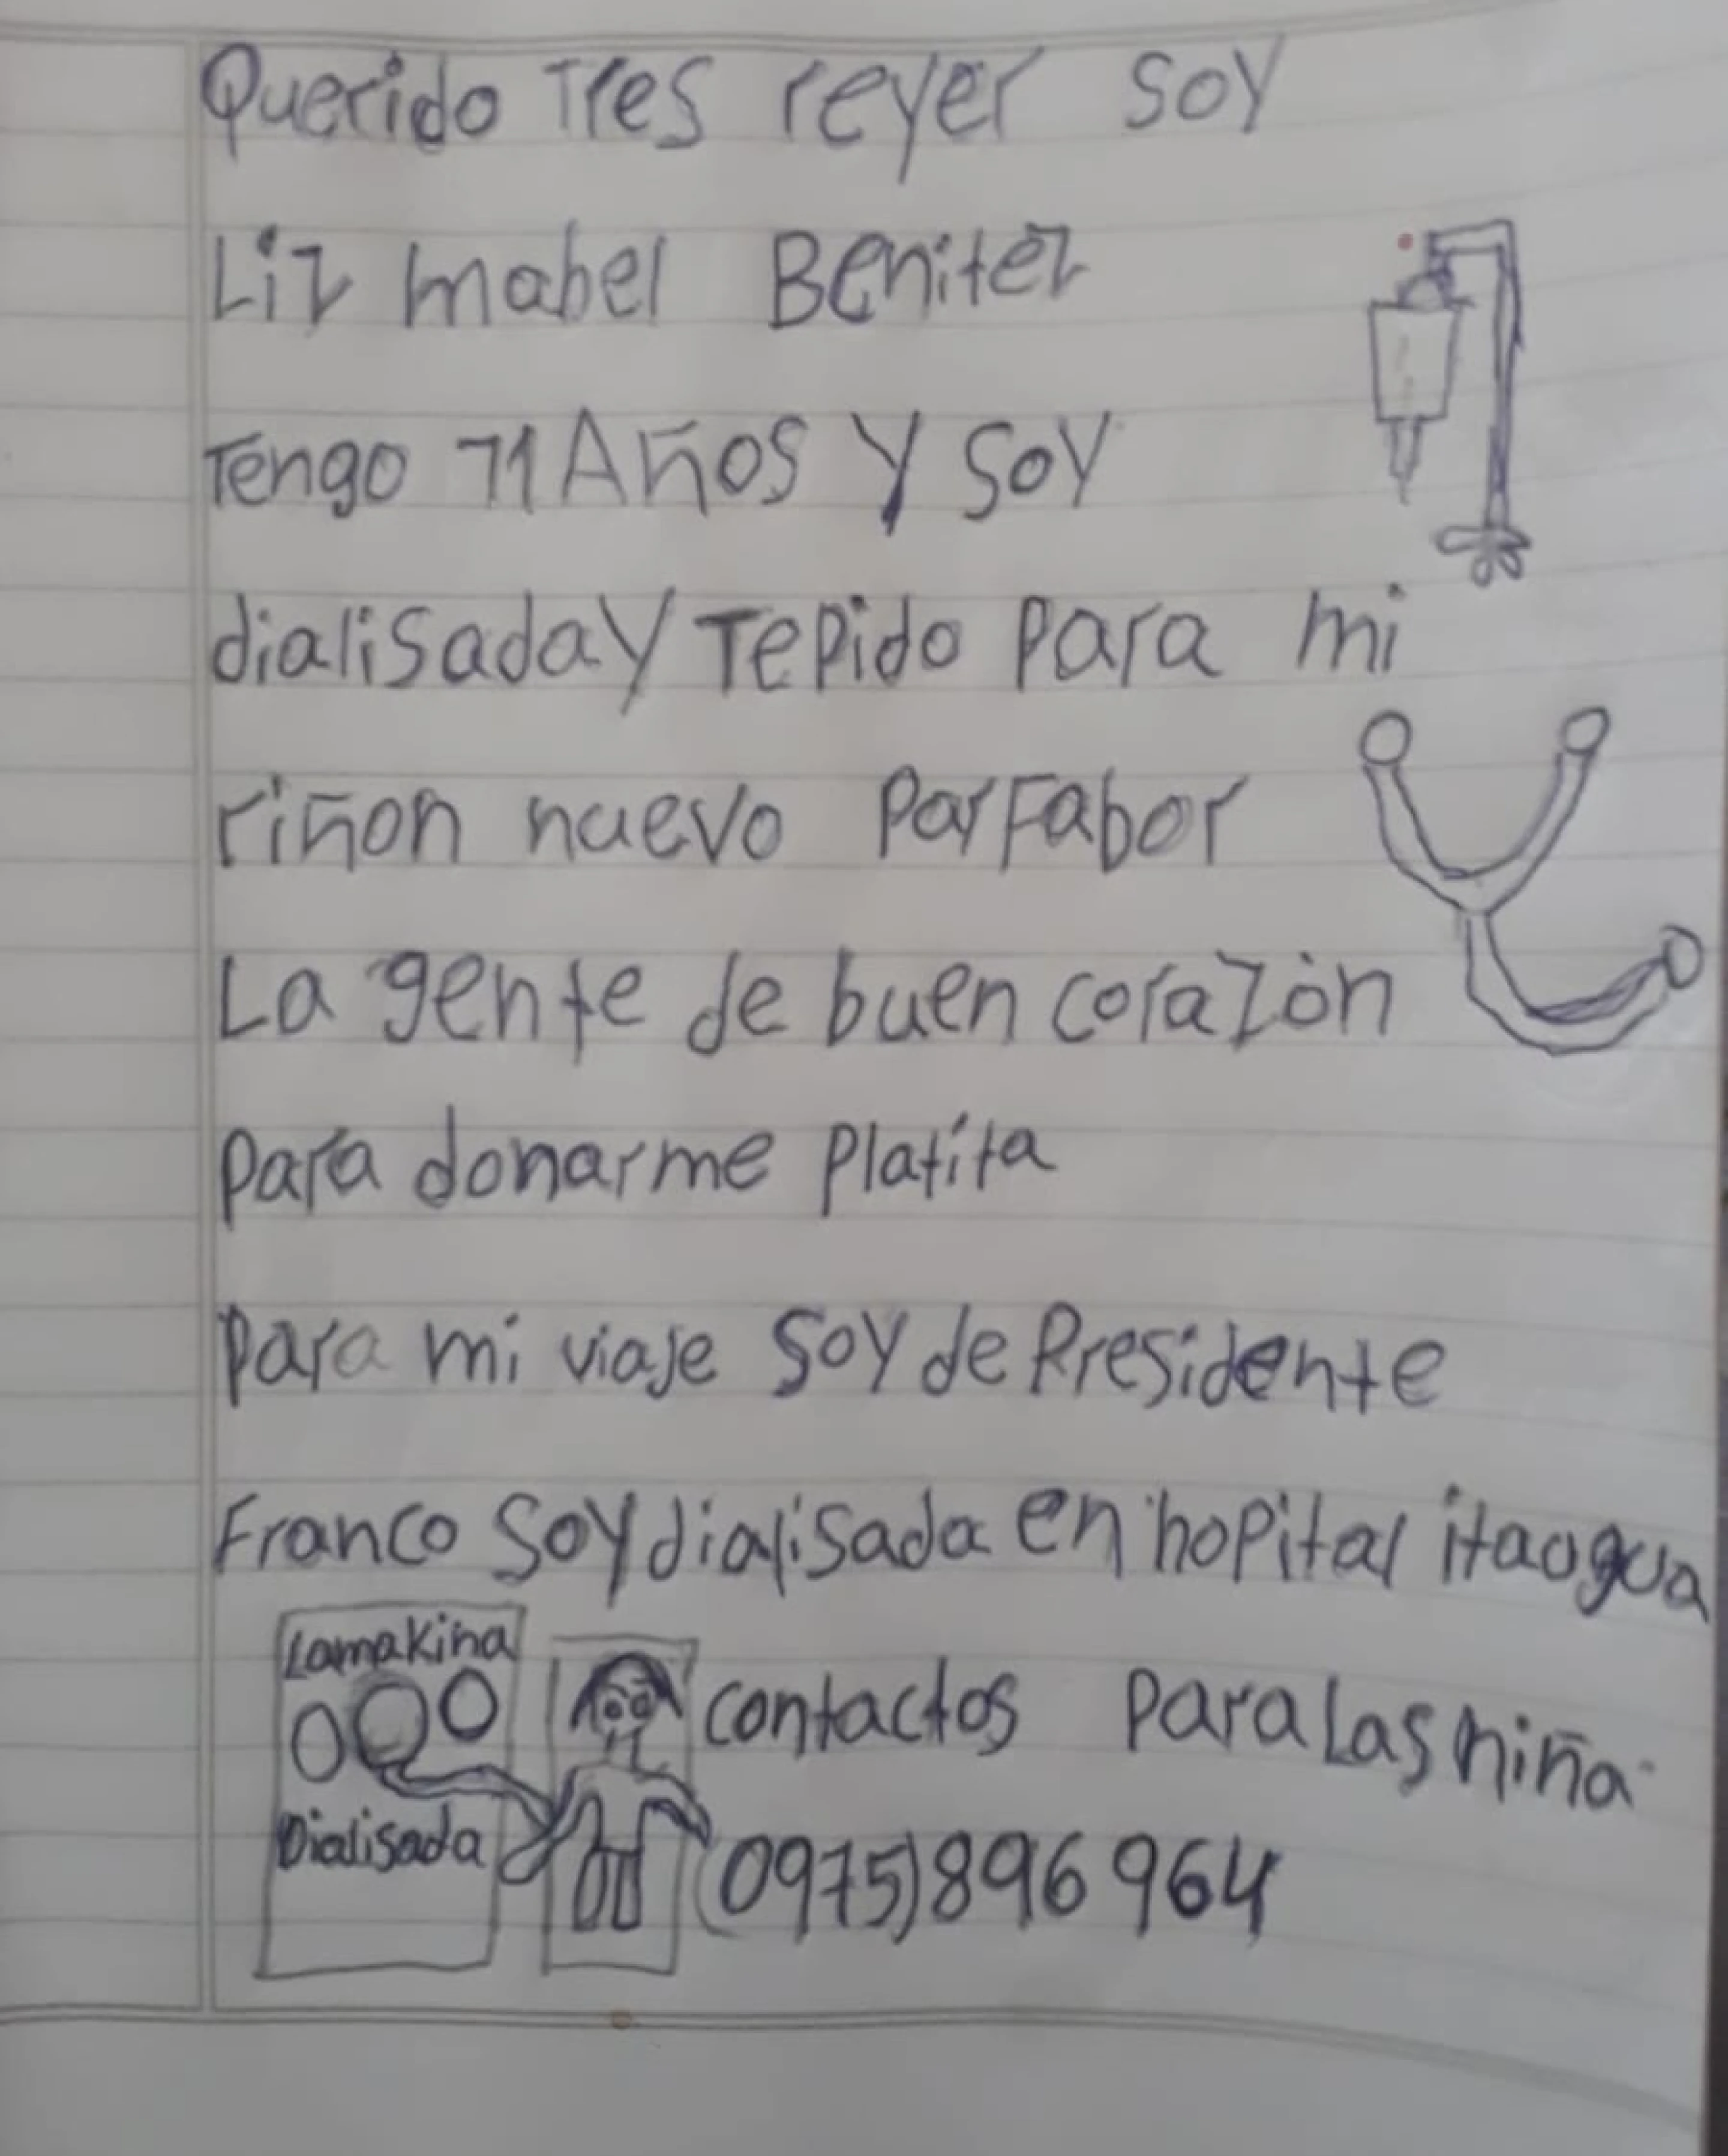 Querido Tres reyer soy
Liz mabel Benitez
Tengo 11 Años y soy
dialisada y Te pido para mi
riñon nuevo Por Fabor
La gente de buen corazón
para donarme platita
para mi viaje soy de Presidente
Franco soy dialisada en hopital itaogua
Lamakina
contactos para Las niña
Dialisada
(0975) 896 964